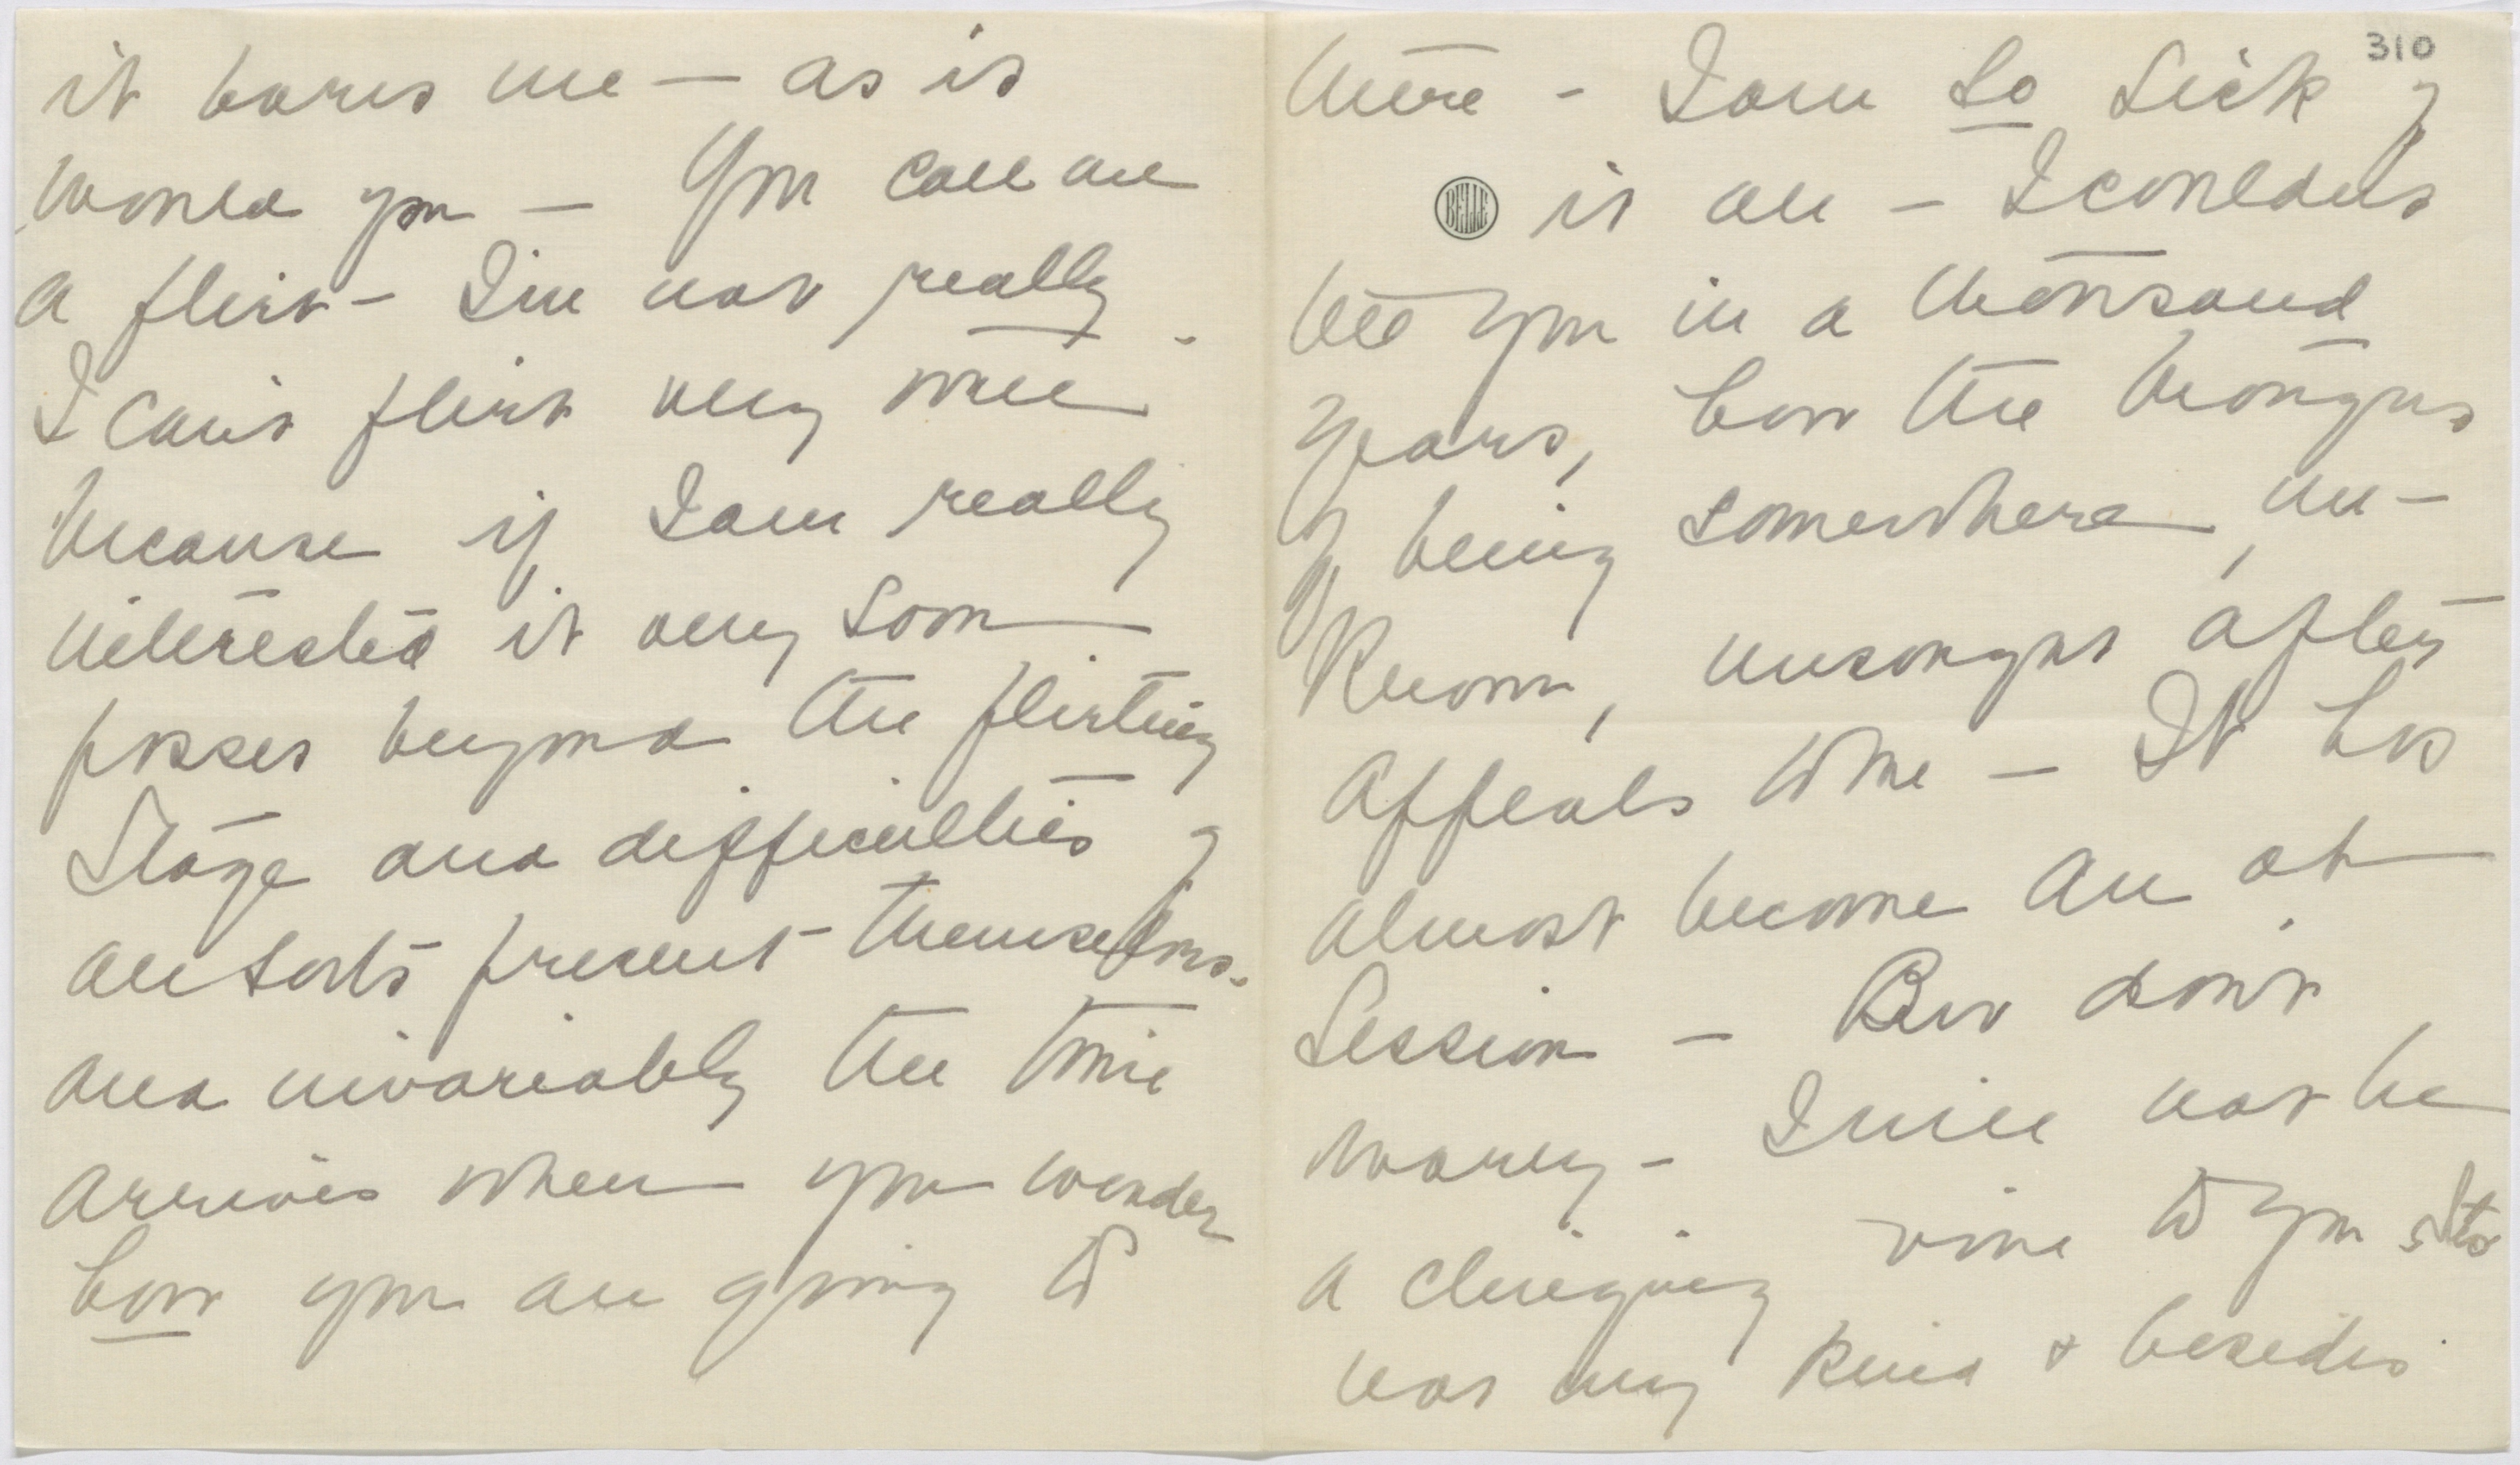 it bores me — as is
would you — You call me
a flirt — I'm not really.
I can't flirt very well
because if I am really
interested it very soon
passes beyond the flirting
Stage and difficulties of
all sorts present themselves.
and invariably the time
arrives when you wonder
how you are going to
310
there - I am so sick of
BELLE it all — I couldn't
tell you in a thousand
years, how the thought
of being somewhere, un-
known, unsought after
appeals to me — It has
almost become an ob
session — But don't
worry — I will not be
a clinging vine to you
not my kind & besides